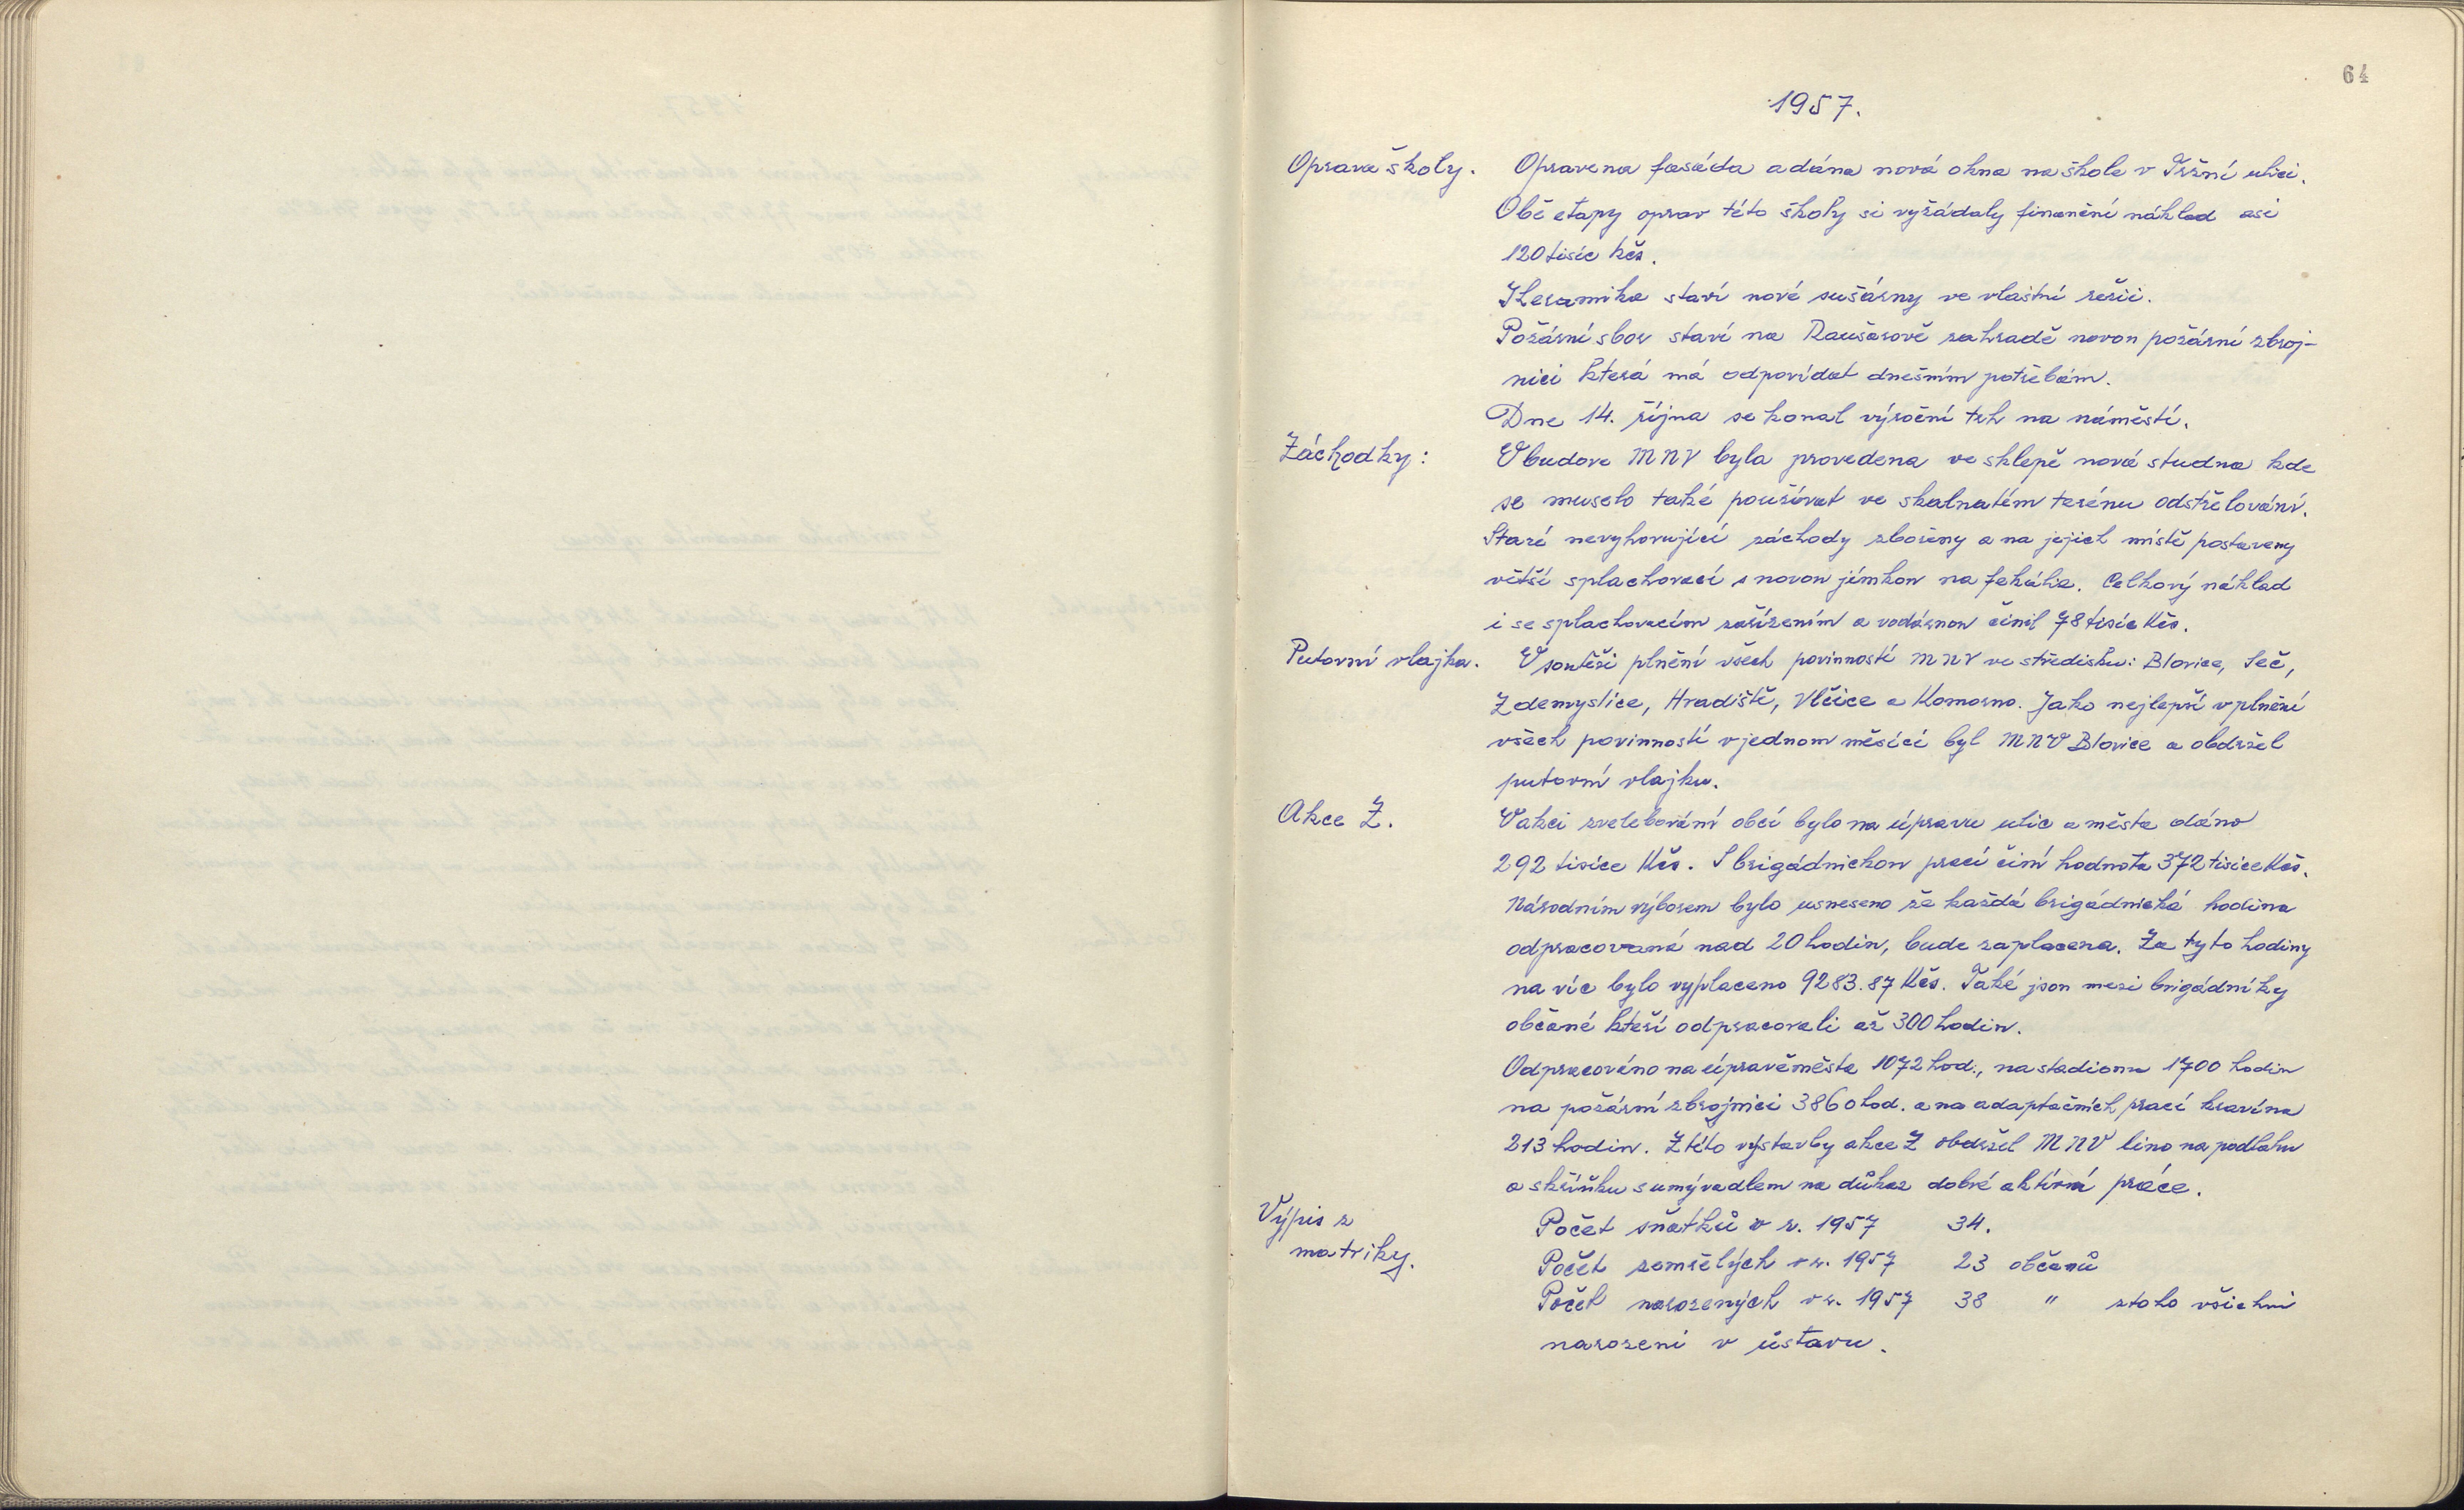 64
1957.
Oprava školy. Opravena fasáda a dána nová okna na škole v Tržní ulici.
Obě etapy oprav této školy si vyžádaly finanční náklad asi
120 tisíc kčs.
Keramika staví nové sušárny ve vlastní režii.
Požární sbor staví na Raušarově zahradě novou požární zbroj-
nici která má odpovídat dnešním potřebám.
Dne 14. října se konal výroční trh na náměstí.
Záchodky: V budově MNV byla provedena ve sklepě nová studna kde
se muselo také používat ve skalnatém terénu odstřelování.
Staré nevyhovující záchody zbořeny a na jejich místě postaveny
větší splachovací s novou jímkou na fekálie. Celkový náklad
i se splachovacím zařízením a vodárnou činil 78 tisíc Kčs.
Putovní vlajka. V soutěži plnění všech povinností MNV ve středisku: Blovice, Seč,
Zdemyslice, Hradiště, Vlčice a Komorno. Jako nejlepší v plnění
všech povinností v jednom měsíci byl MNV Blovice a obdržel
putovní vlajku.
Akce Z. V akci zvelebování obcí bylo na úpravu ulic a města dáno
292 tisíce Kčs. S brigádnickou prací činí hodnota 372 tisíce Kčs.
Národním výborem bylo usneseno že každá brigádnická hodina
odpracovaná nad 20 hodin, bude zaplacena. Za tyto hodiny
na víc bylo vyplaceno 9283.87 Kčs. Také jsou mezi brigádníky
občané kteří odpracovali až 300 hodin.
Odpracováno na úpravě města 1072 hod., na stadionu 1700 hodin
na požární zbrojnici 3860 hod. a na adaptačních prací kravína
213 hodin. Z této výstavby akce Z obdržel MNV lino na podlahu
a skříňku s umývadlem na důkaz dobré aktivní práce.
Výpis z Počet sňatků v r. 1957 34.
matriky. Počet zemřelých v r. 1957 23 občanů
Počet narozených v r. 1957 38 " z toho všichni
narozeni v ústavu.